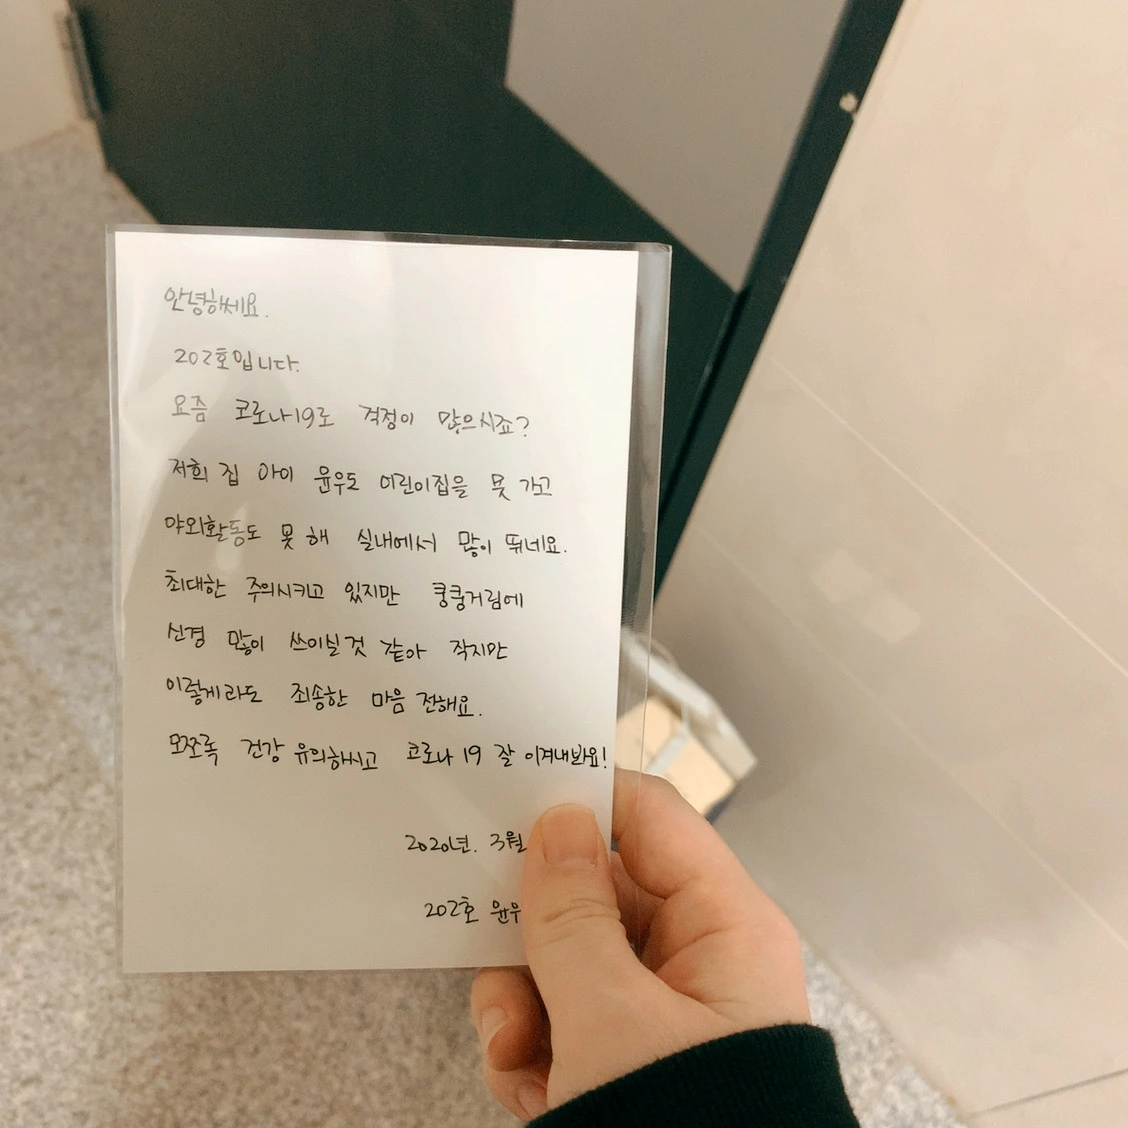 안녕하세요.
202호입니다.
요즘 코로나19로 걱정이 많으시죠?
저희 집 아이 윤우도 어린이집을 못 가고
야외활동도 못 해 실내에서 많이 뛰네요.
최대한 주의시키고 있지만 쿵쿵거림에
신경 많이 쓰이실것 같아 작지만
이렇게라도 죄송한 마음 전해요.
모쪼록 건강 유의하시고 코로나 19 잘 이겨내봐요!
2020년. 3월
202호 윤우